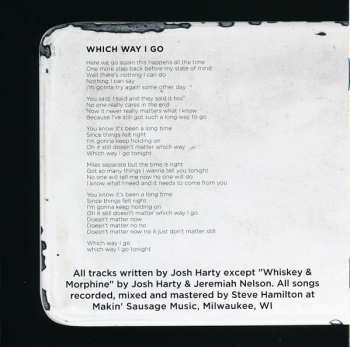 WHICH WAY I GO
Here we go again this happens all the time
One more step back before my state of mind
Well there's nothing I can do
Nothing I can say
I'm gonna try again some other day
You said, I said and they said it too
No one really cares in the end
Now it never really matters what I know
Because I've still got such a long way to go
You know it's been a long time
Since things felt right
I'm gonna keep holding on
Oh it still doesn't matter which way
Which way I go tonight
Miles separate but the time is right
Got so many things I wanna tell you tonight
No one will tell me now no one will do
I know what I need and it needs to come from you
You know it's been a long time
Since things felt right
I'm gonna keep holding on
Oh it still doesn't matter which way I go
Doesn't matter now
Doesn't matter no no
Doesn't matter now no it just don't matter still
Which way I go
which way I go tonight
All tracks written by Josh Harty except "Whiskey &
Morphine" by Josh Harty & Jeremiah Nelson. All songs
recorded, mixed and mastered by Steve Hamilton at
Makin' Sausage Music, Milwaukee, WI